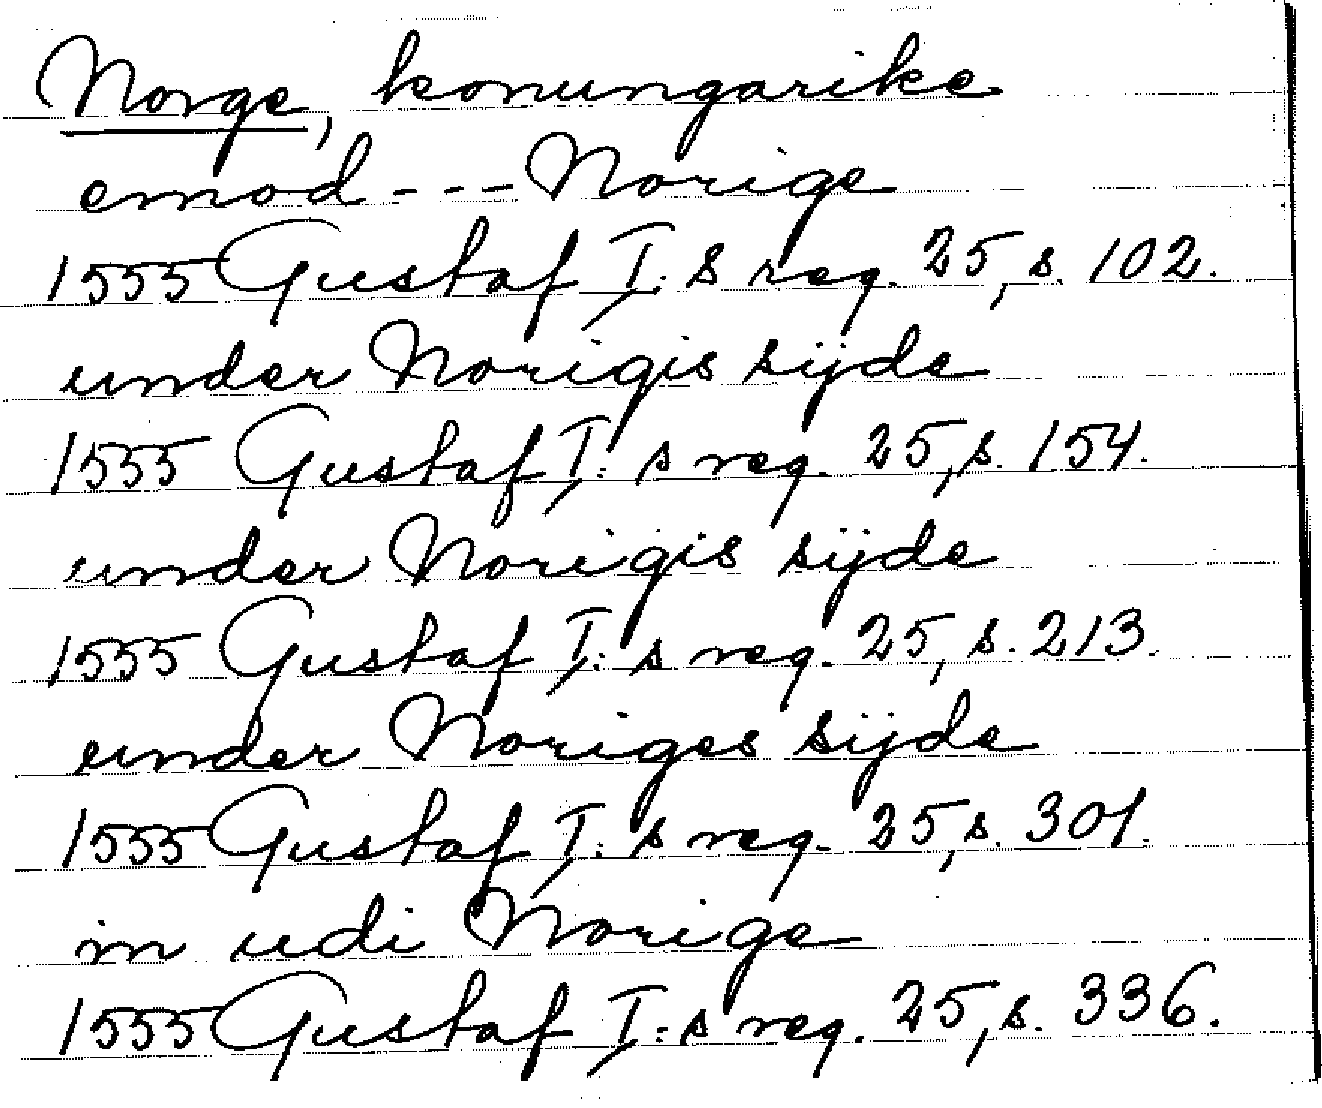 Norge, konungarike
emod --- Norige
1555 Gustaf I:s reg. 25, s. 102.
under Norigis sijde
1555 Gustaf I:s reg. 25, s. 154.
under Norigis sijde
1555 Gustaf I:s reg. 25, s. 213.
under Noriges sijde
1555 Gustaf I:s reg. 25, s. 301.
in udi Norige
1555 Gustaf I:s reg. 25, s. 336.